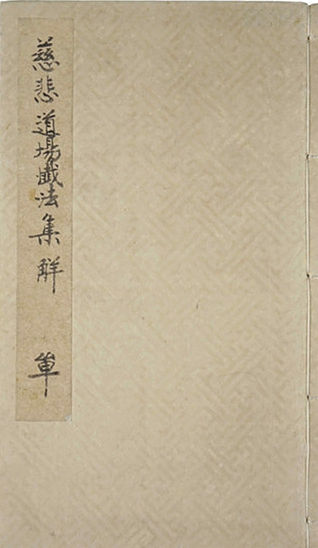 慈悲道場懺法集解 單